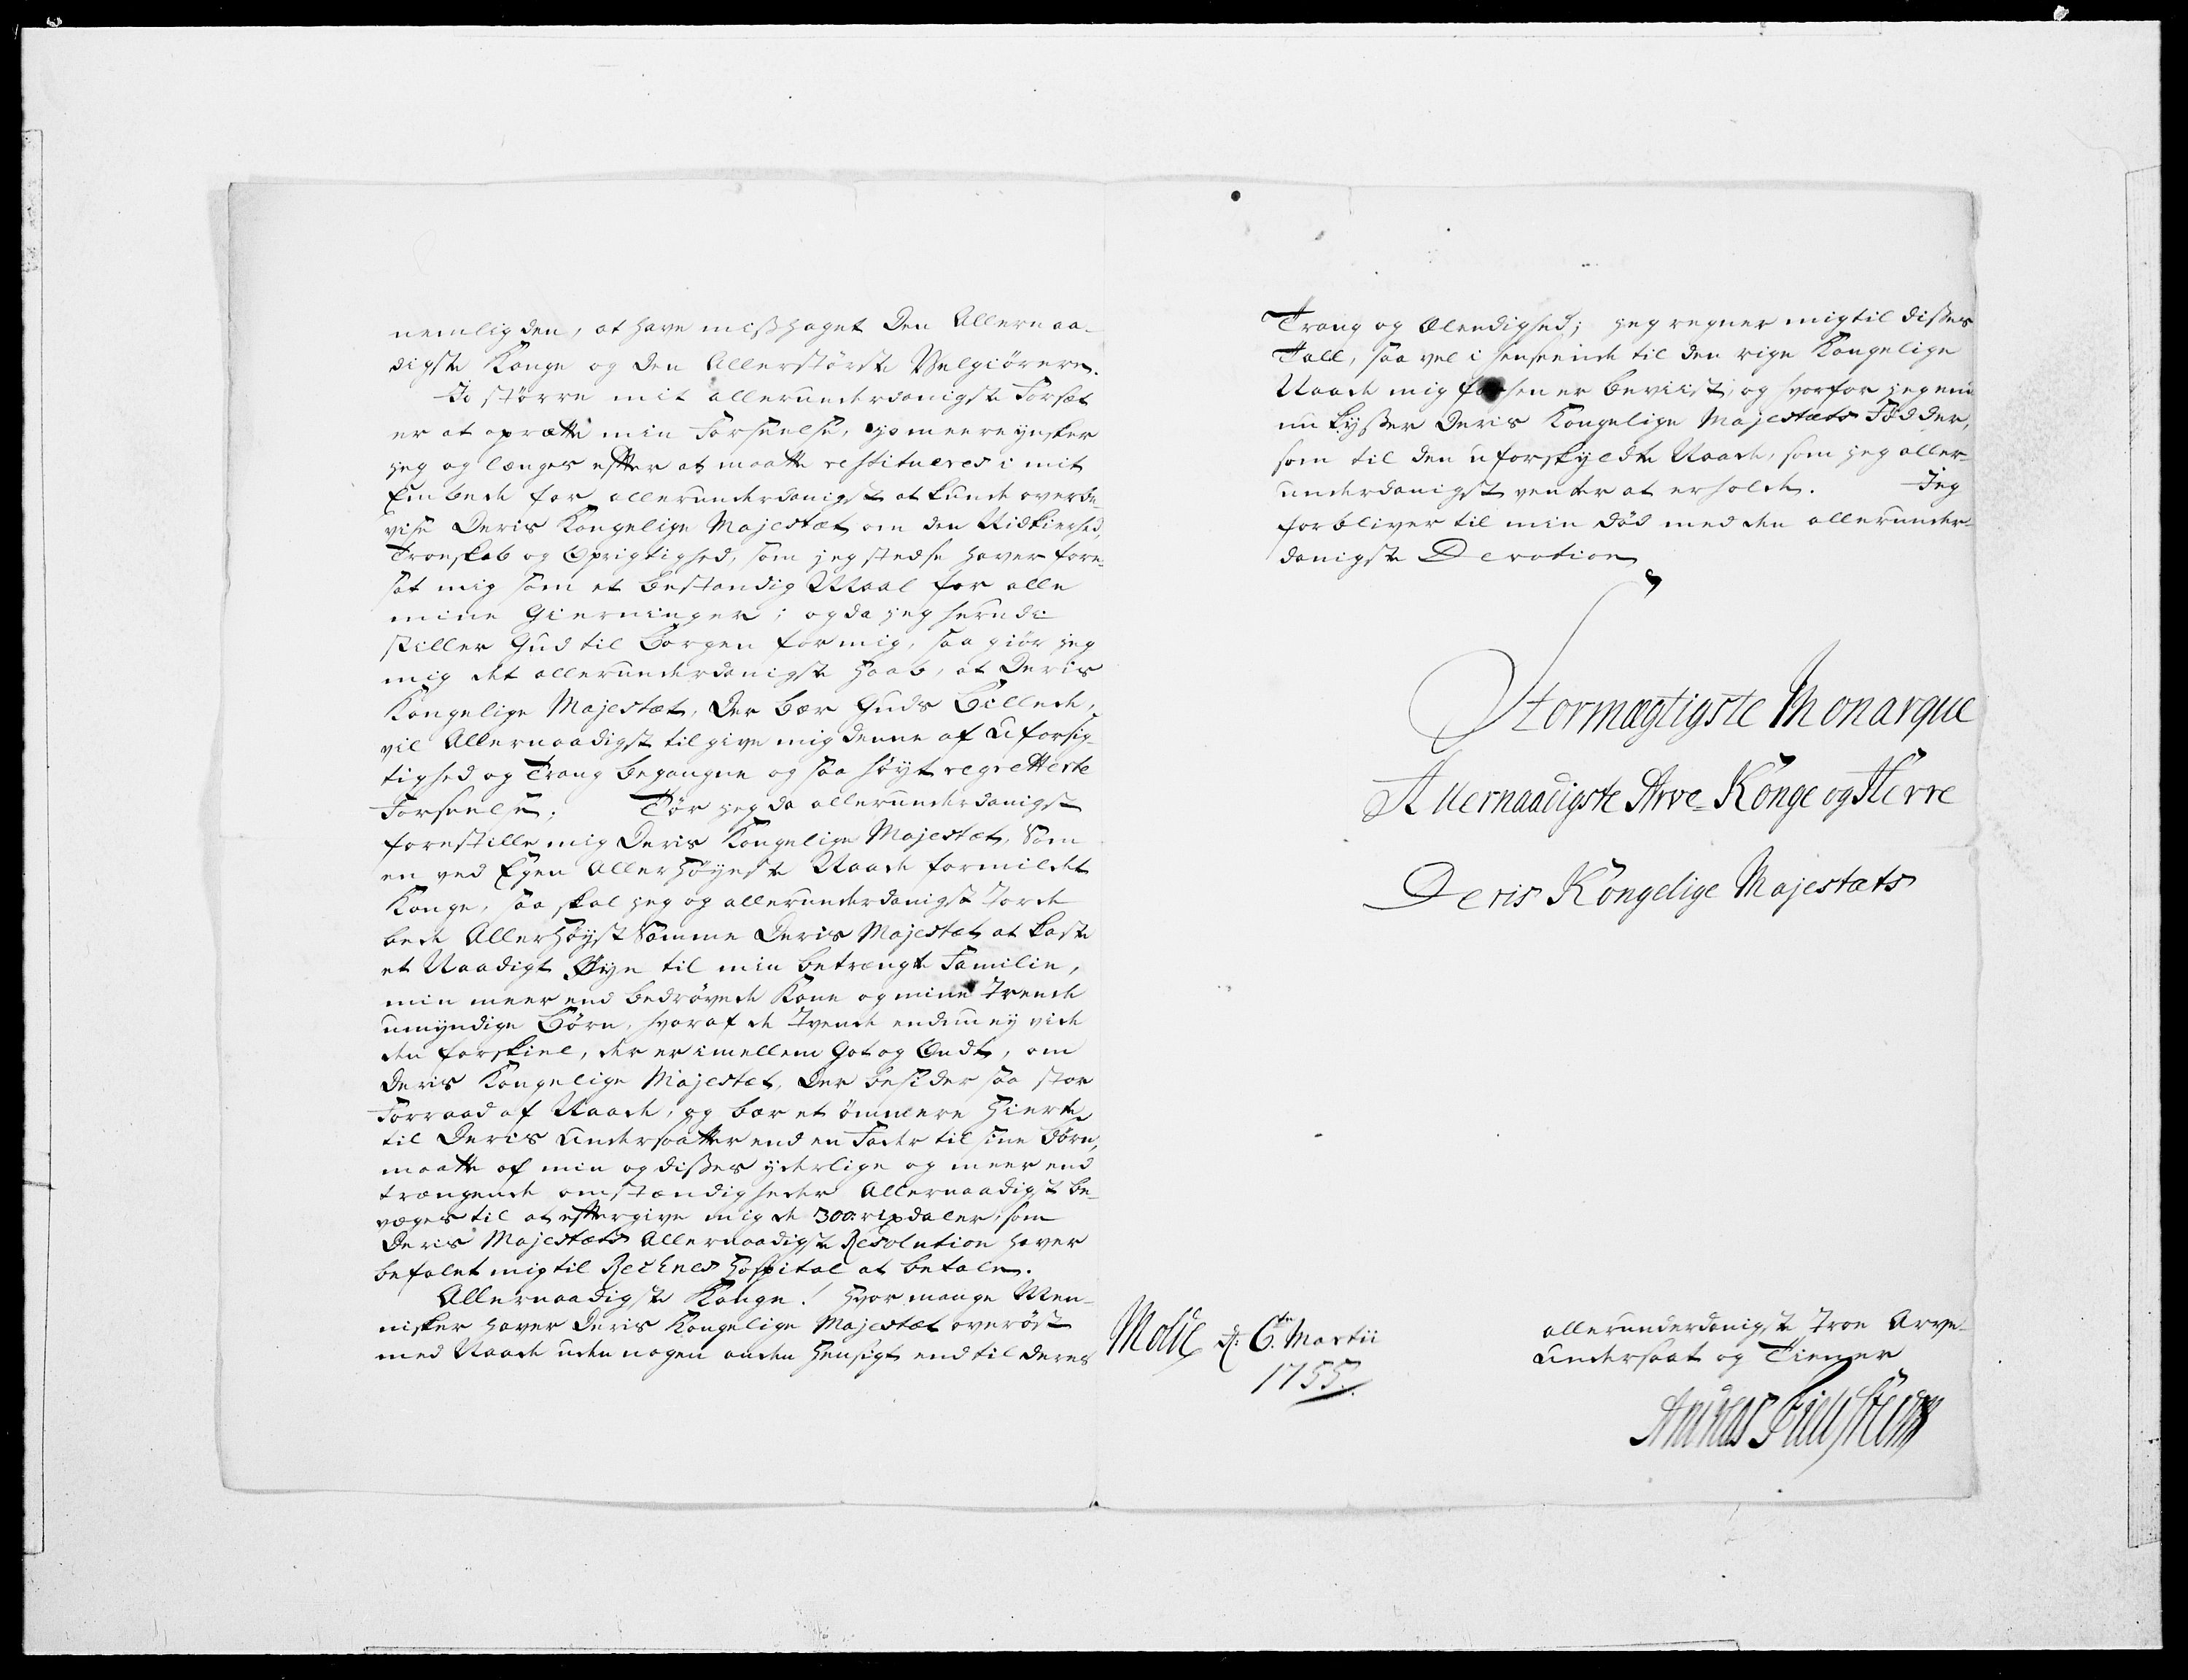 nemlig den, at have mishaget Den Allernaa-
digste Konge og den Allerstörste Velgiörere.
Jo större mit allerunderdanigste Forsæt
er at oprætte min Forseelse, jo meere ynsker
jeg og længes efter at maatte restitueres i mit
Embede for allerunderdanigst at kunde overbe-
vise Deris Kongelige Majestæt om den Nidkierhed,
Troeskab og Oprigtighed, som jeg stedse haver fore-
sat mig som et bestandig Maal for alle
mine Gierninger; og da jeg herudi
stiller Gud til Borgen for mig, saa giör jeg
mig det allerunderdanigste Haab, at Deris
Kongelige Majestæt, Der bær Guds Billede,
vil Allernaadigst tilgive mig denne af Uforsig-
tighed og Trang begangne og saa höyt regretterte
Forseelse. Tör jeg da allerunderdanigst
forestille mig Deris Kongelige Majestæt, Som
en ved Egen Allerhöyeste Naade formildet
Konge, saa skal jeg og allerunderdanigst torde
bede Allerhöyst Samme Deris Majestæt at kaste
et Naadigt Øye til min betrængte Familie,
min meer end bedrövede Kone og mine trende
umyndige Börn, hvoraf de tvende endnu ey vide
den forskiel, der er imellem Got og Ondt, om
Deris Kongelige Majestæt, Der besidder saa stor
Forraad af Naade, og bær et ömmere Hierte
til Deris Undersaatter end en Fader til sine Börn,
maatte af min og disses yderlige og meer end
trængende omstændigheder Allernaadigst be-
væges til at eftergive mig de 300 rixdaler, som
Deris Majestæts Allernaadigste Resolution haver
befalet mig til Reknes Hospital at betale.
Allernaadigste Konge! Hvor mange Men-
nisker haver Deris Kongelige Majestæt overöst
med Naade uden nogen anden Hensigt end til deres
Trang og Elendighed; jeg regner mig til disses
Tall, saa vel i henseende til den rige Kongelige
Naade mig forhen er beviist, og hvorfor jeg end
nu kysser Deris Kongelige Majestæts Födder,
som til den uforskyldte Naade, som jeg aller-
underdanigst venter at erholde. Jeg
forbliver til min Död med den allerunder-
danigste Devotion
Stormægtigste Monarque
Allernaadigste Arve-Konge og Herre
Deris Kongelige Majestæts
Molde d: 6te Martii
1755.
allerunderdanigste troe Arve-
Undersaat og Tiener
Andreas